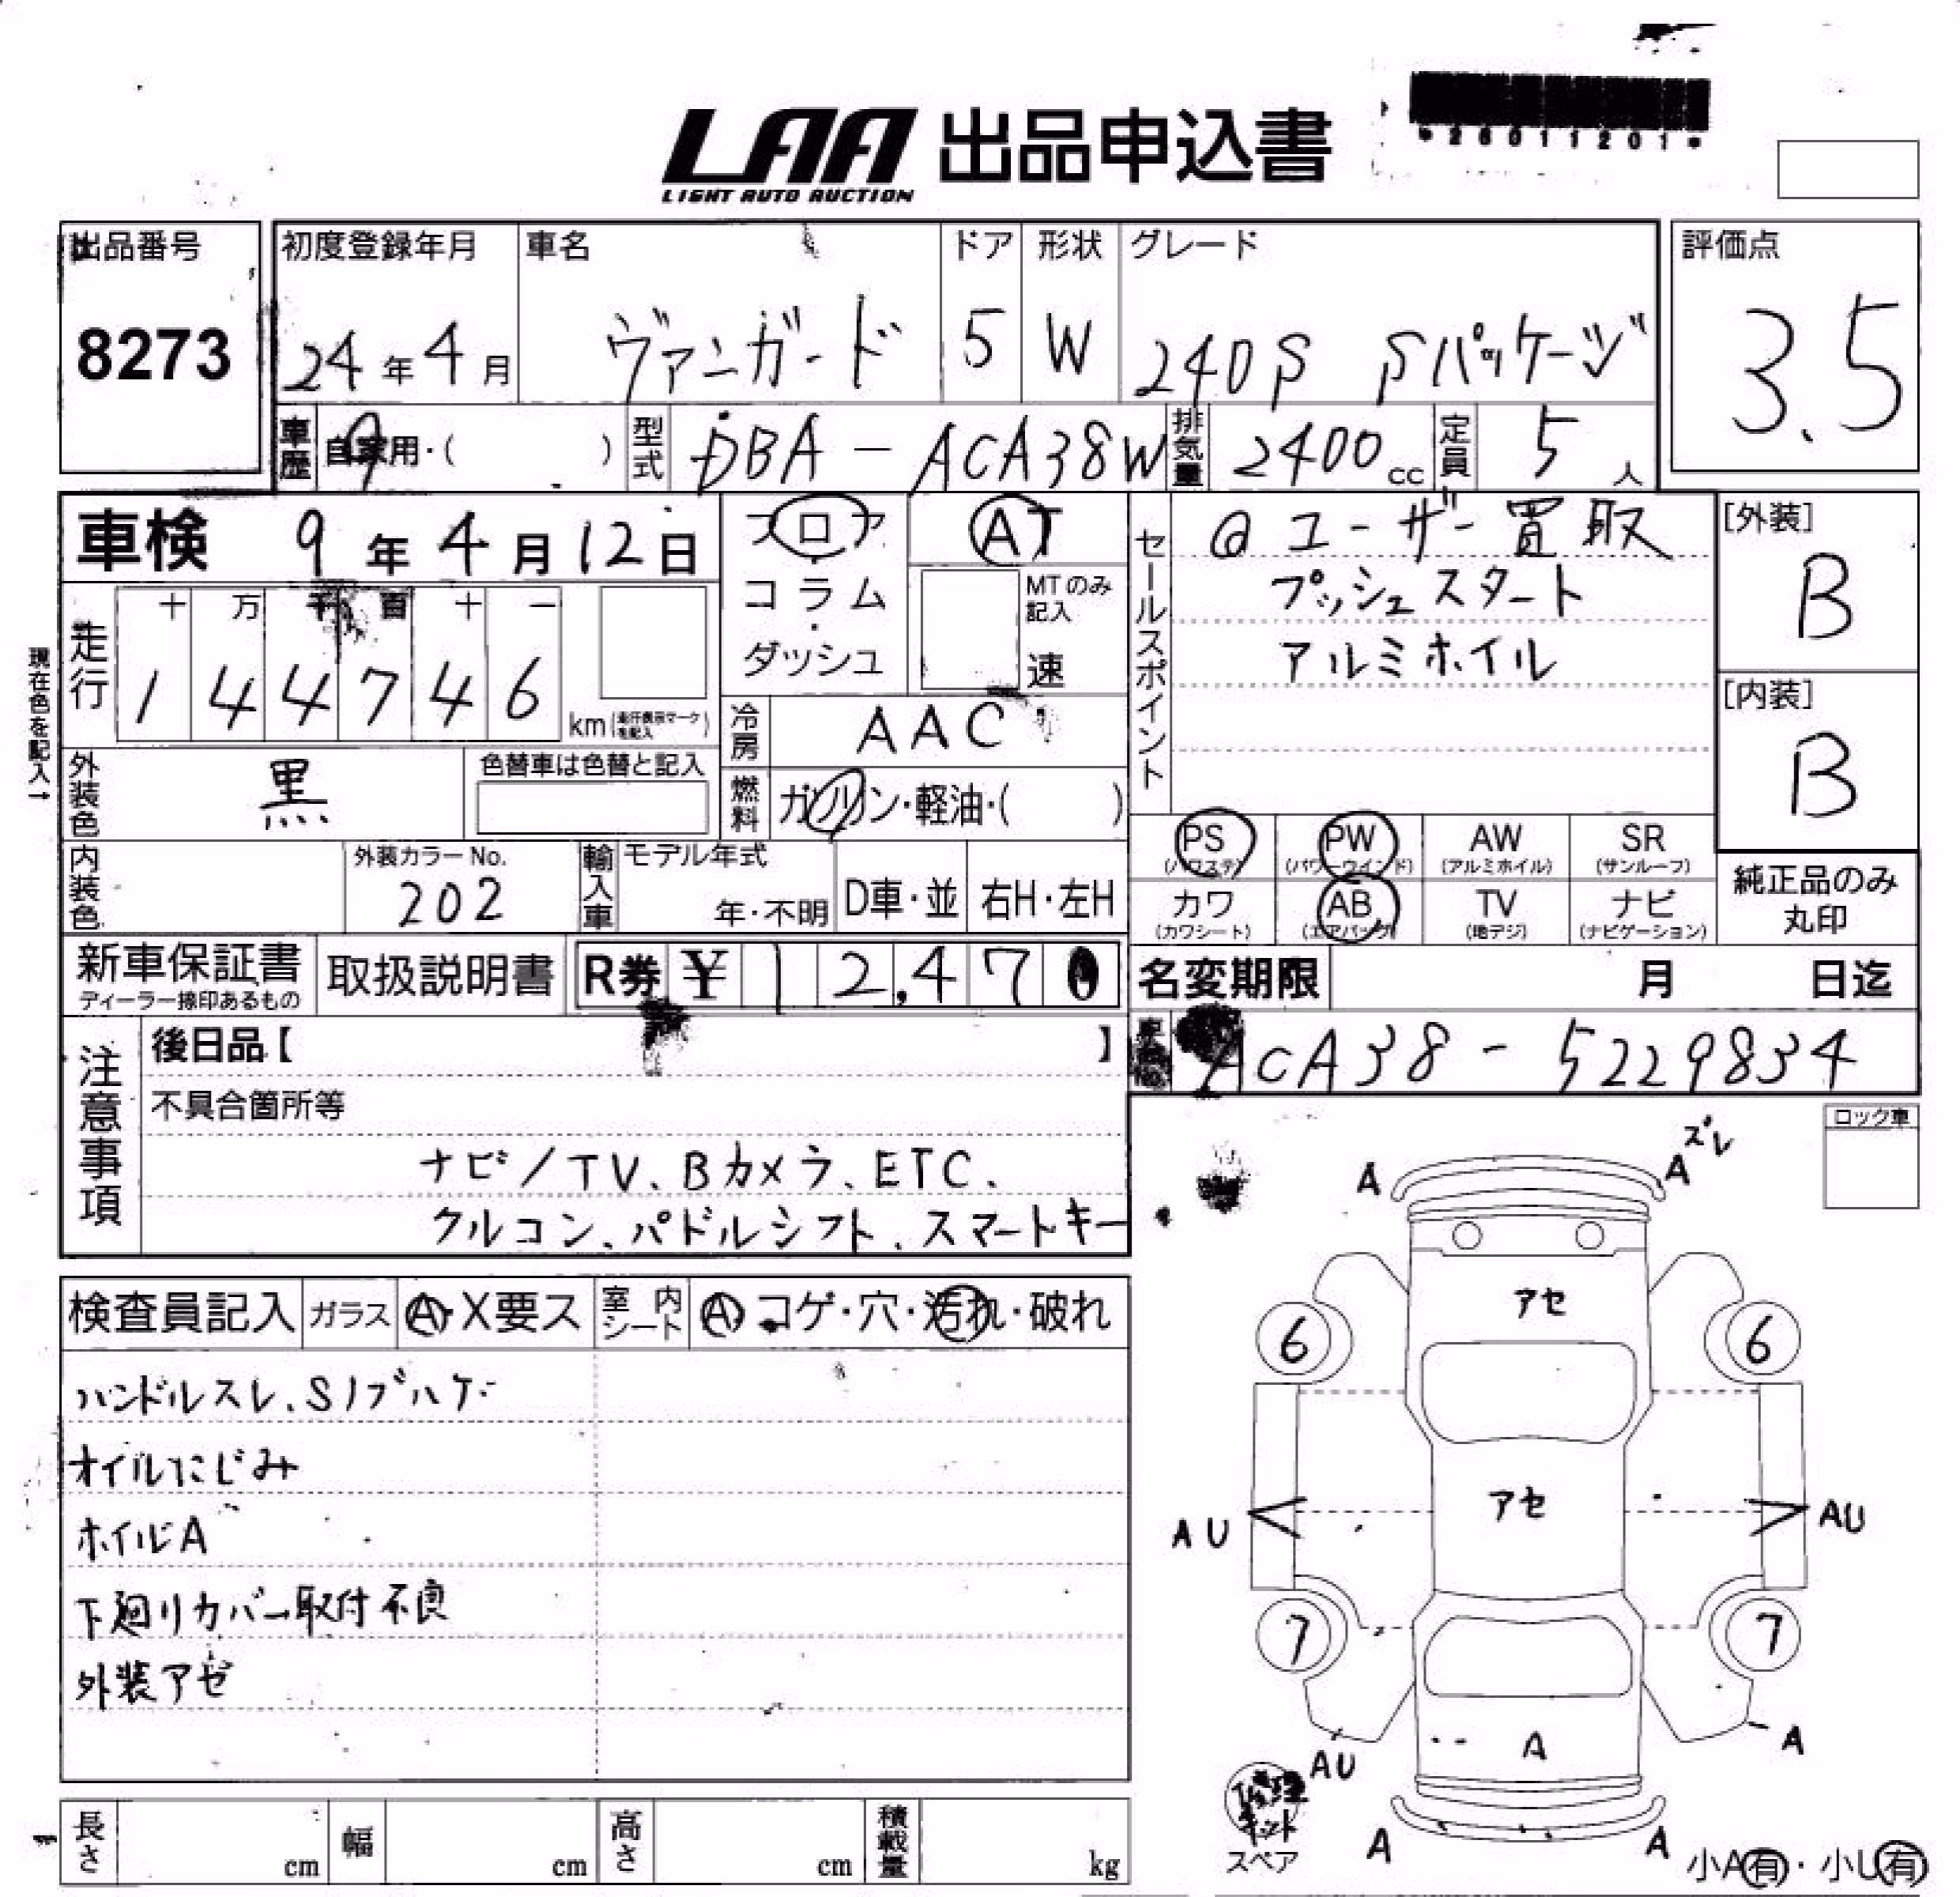 LAA 出品申込書
LIGHT AUTO AUCTION
*26011201*
出品番号
8273
初度登録年月
24年4月
車名
ヴァンガード
ドア
5
形状
W
グレード
240S Sパッケージ
評価点
3.5
車歴
自家用・( )
型式
DBA-ACA38W
排気量
2400cc
定員
5人
車検 9年4月12日
フロア
コラム
ダッシュ
AT
MTのみ記入
速
セールスポイント
@ユーザー買取
プッシュスタート
アルミホイル
[外装]
B
[内装]
B
現在色を記入→
走行
十 万 千 百 十 一
1 4 4 7 4 6
km(走行表示マークを記入)
冷房
AAC
外装色
黒
色替車は色替と記入
燃料
ガソリン・軽油・( )
内装色
外装カラーNo.
202
輸入車
モデル年式
年・不明
D車・並
右H・左H
PS (パワステ)
PW (パワーウインド)
AW (アルミホイル)
SR (サンルーフ)
カワ (カワシート)
AB (エアバッグ)
TV (地デジ)
ナビ (ナビゲーション)
純正品のみ
丸印
新車保証書
ディーラー捺印あるもの
取扱説明書
R券 ¥12,470
名変期限 月 日迄
ACA38-5229834
注意事項
後日品【 】
不具合箇所等
ナビ/TV、Bカメラ、ETC、
クルコン、パドルシフト、スマートキー
ロック車
検査員記入
ガラス
A・X要ス
室内シート
A・コゲ・穴・汚れ・破れ
ハンドルスレ、Sノブハゲ
オイルにじみ
ホイルA
下廻りカバー取付不良
外装アセ
A
A ズレ
アセ
6
6
アセ
AU
AU
7
7
AU
A
A
A
A
修理キット
スペア
小A有・小U有
長さ cm
幅 cm
高さ cm
積載量 kg